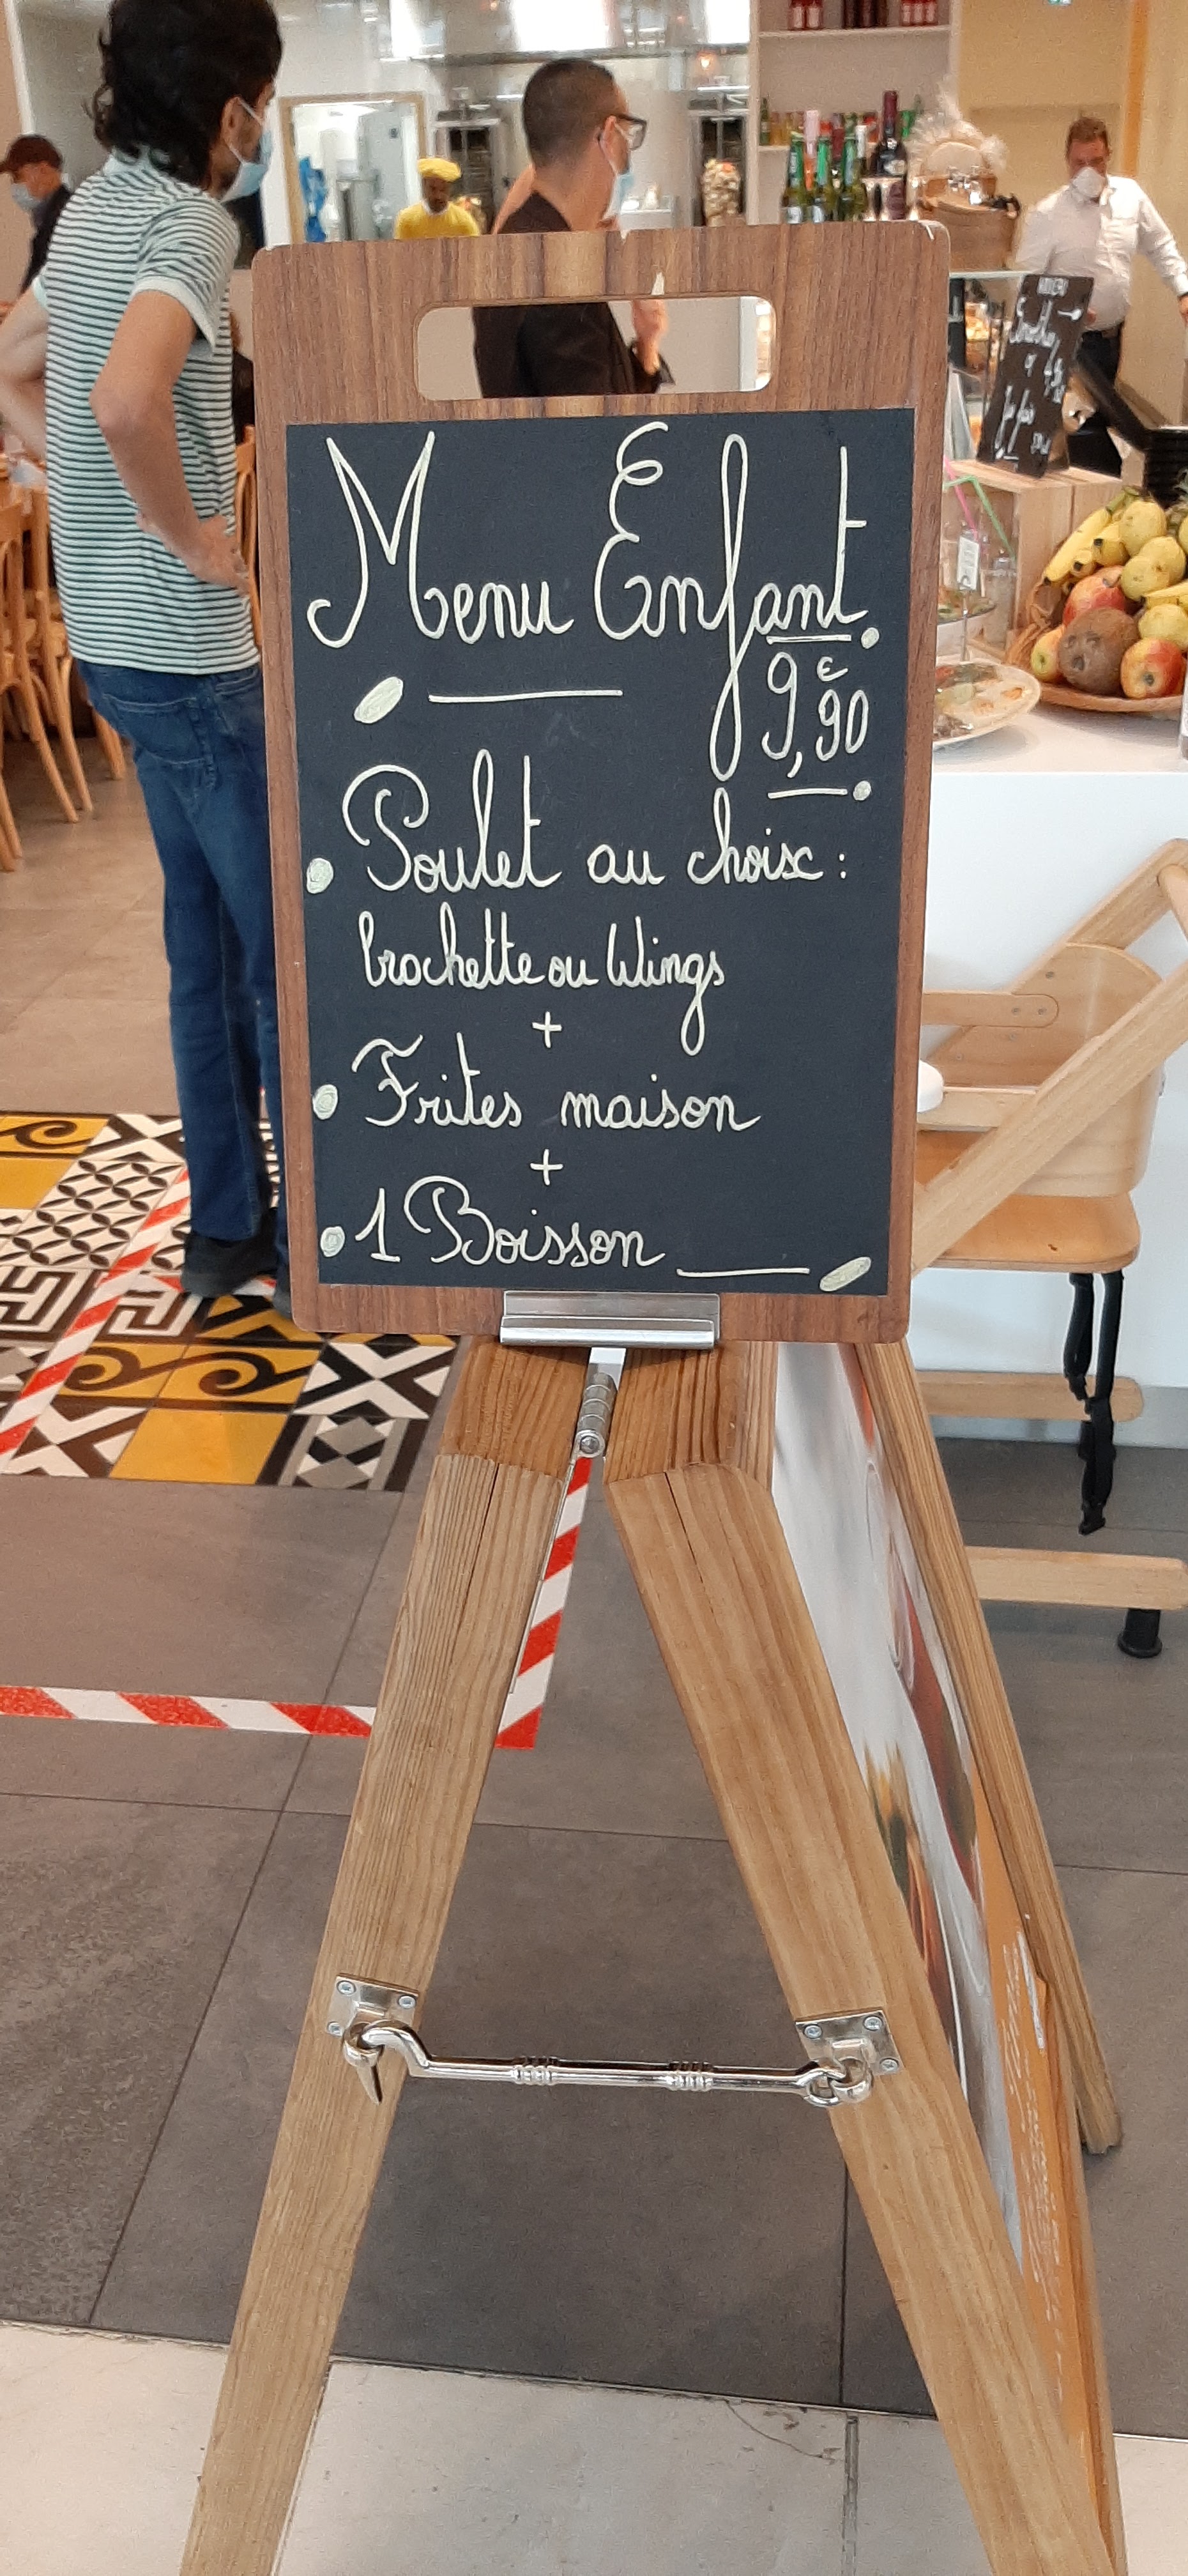 Menu Enfant
9,€90
Poulet au choix :
brochette ou Wings
+
Frites maison
+
1 Boisson